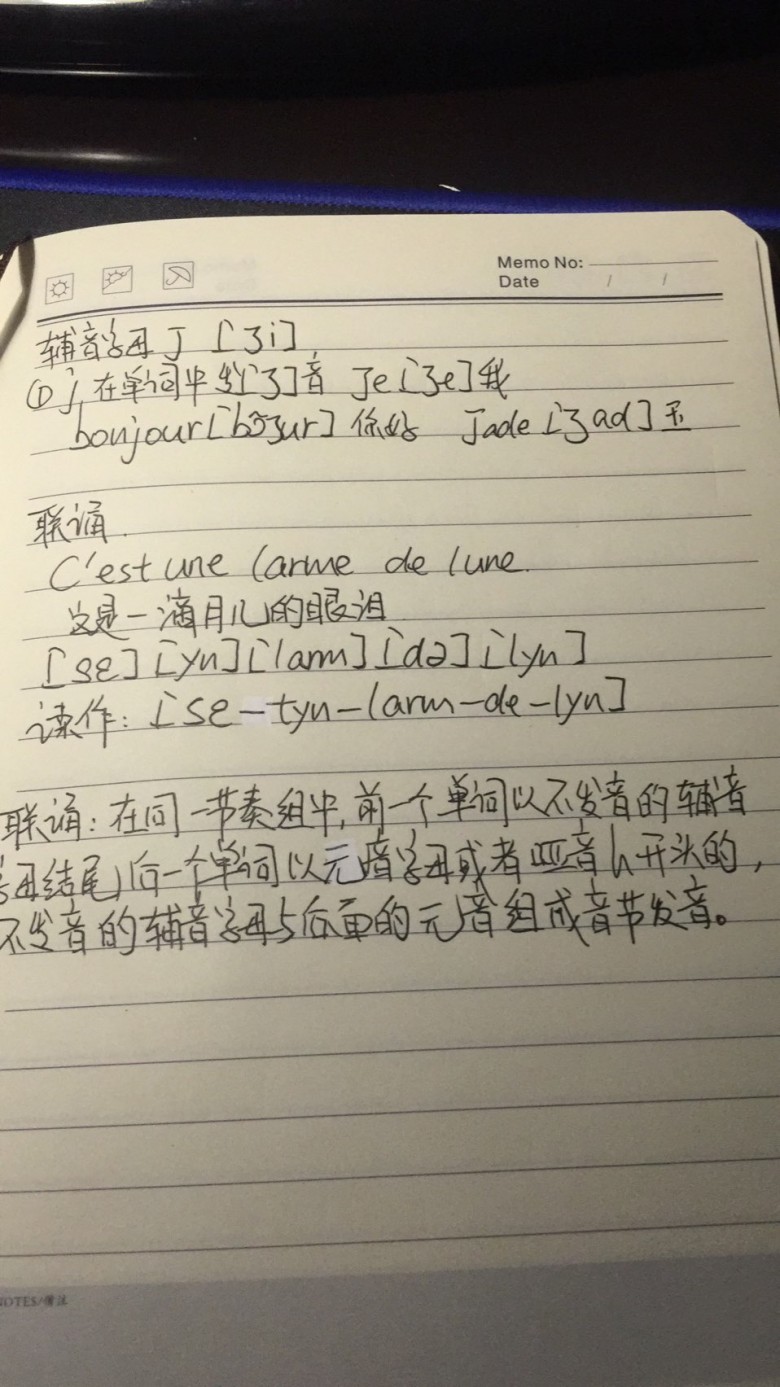 Memo No:
Date / /
辅音字母 J [ʒi]
① j 在单词中发[ʒ]音 Je[ʒe]我
bonjour[bɔ̃ʒur] 你好 Jade[ʒad]玉
联诵
C'est une larme de lune.
这是一滴月儿的眼泪
[se][yn][larm][də][lyn]
读作：[se-tyn-larm-de-lyn]
联诵：在同一节奏组中,前一个单词以不发音的辅音
字母结尾,后一个单词以元音字母或者哑音h开头的,
不发音的辅音字母与后面的元音组成音节发音。
NOTES/备注